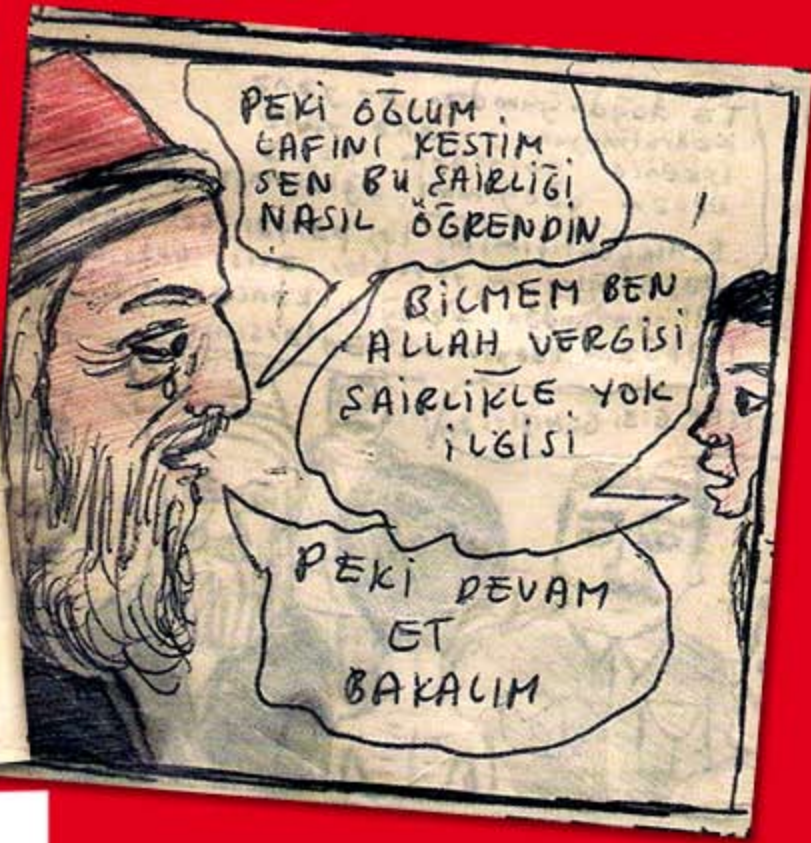 PEKİ OĞLUM.
LAFINI KESTİM
SEN BU ŞAİRLİĞİ
NASIL ÖĞRENDİN
BİLMEM BEN
ALLAH VERGİSİ
ŞAİRLİKLE YOK
İLGİSİ
PEKİ DEVAM
ET
BAKALIM